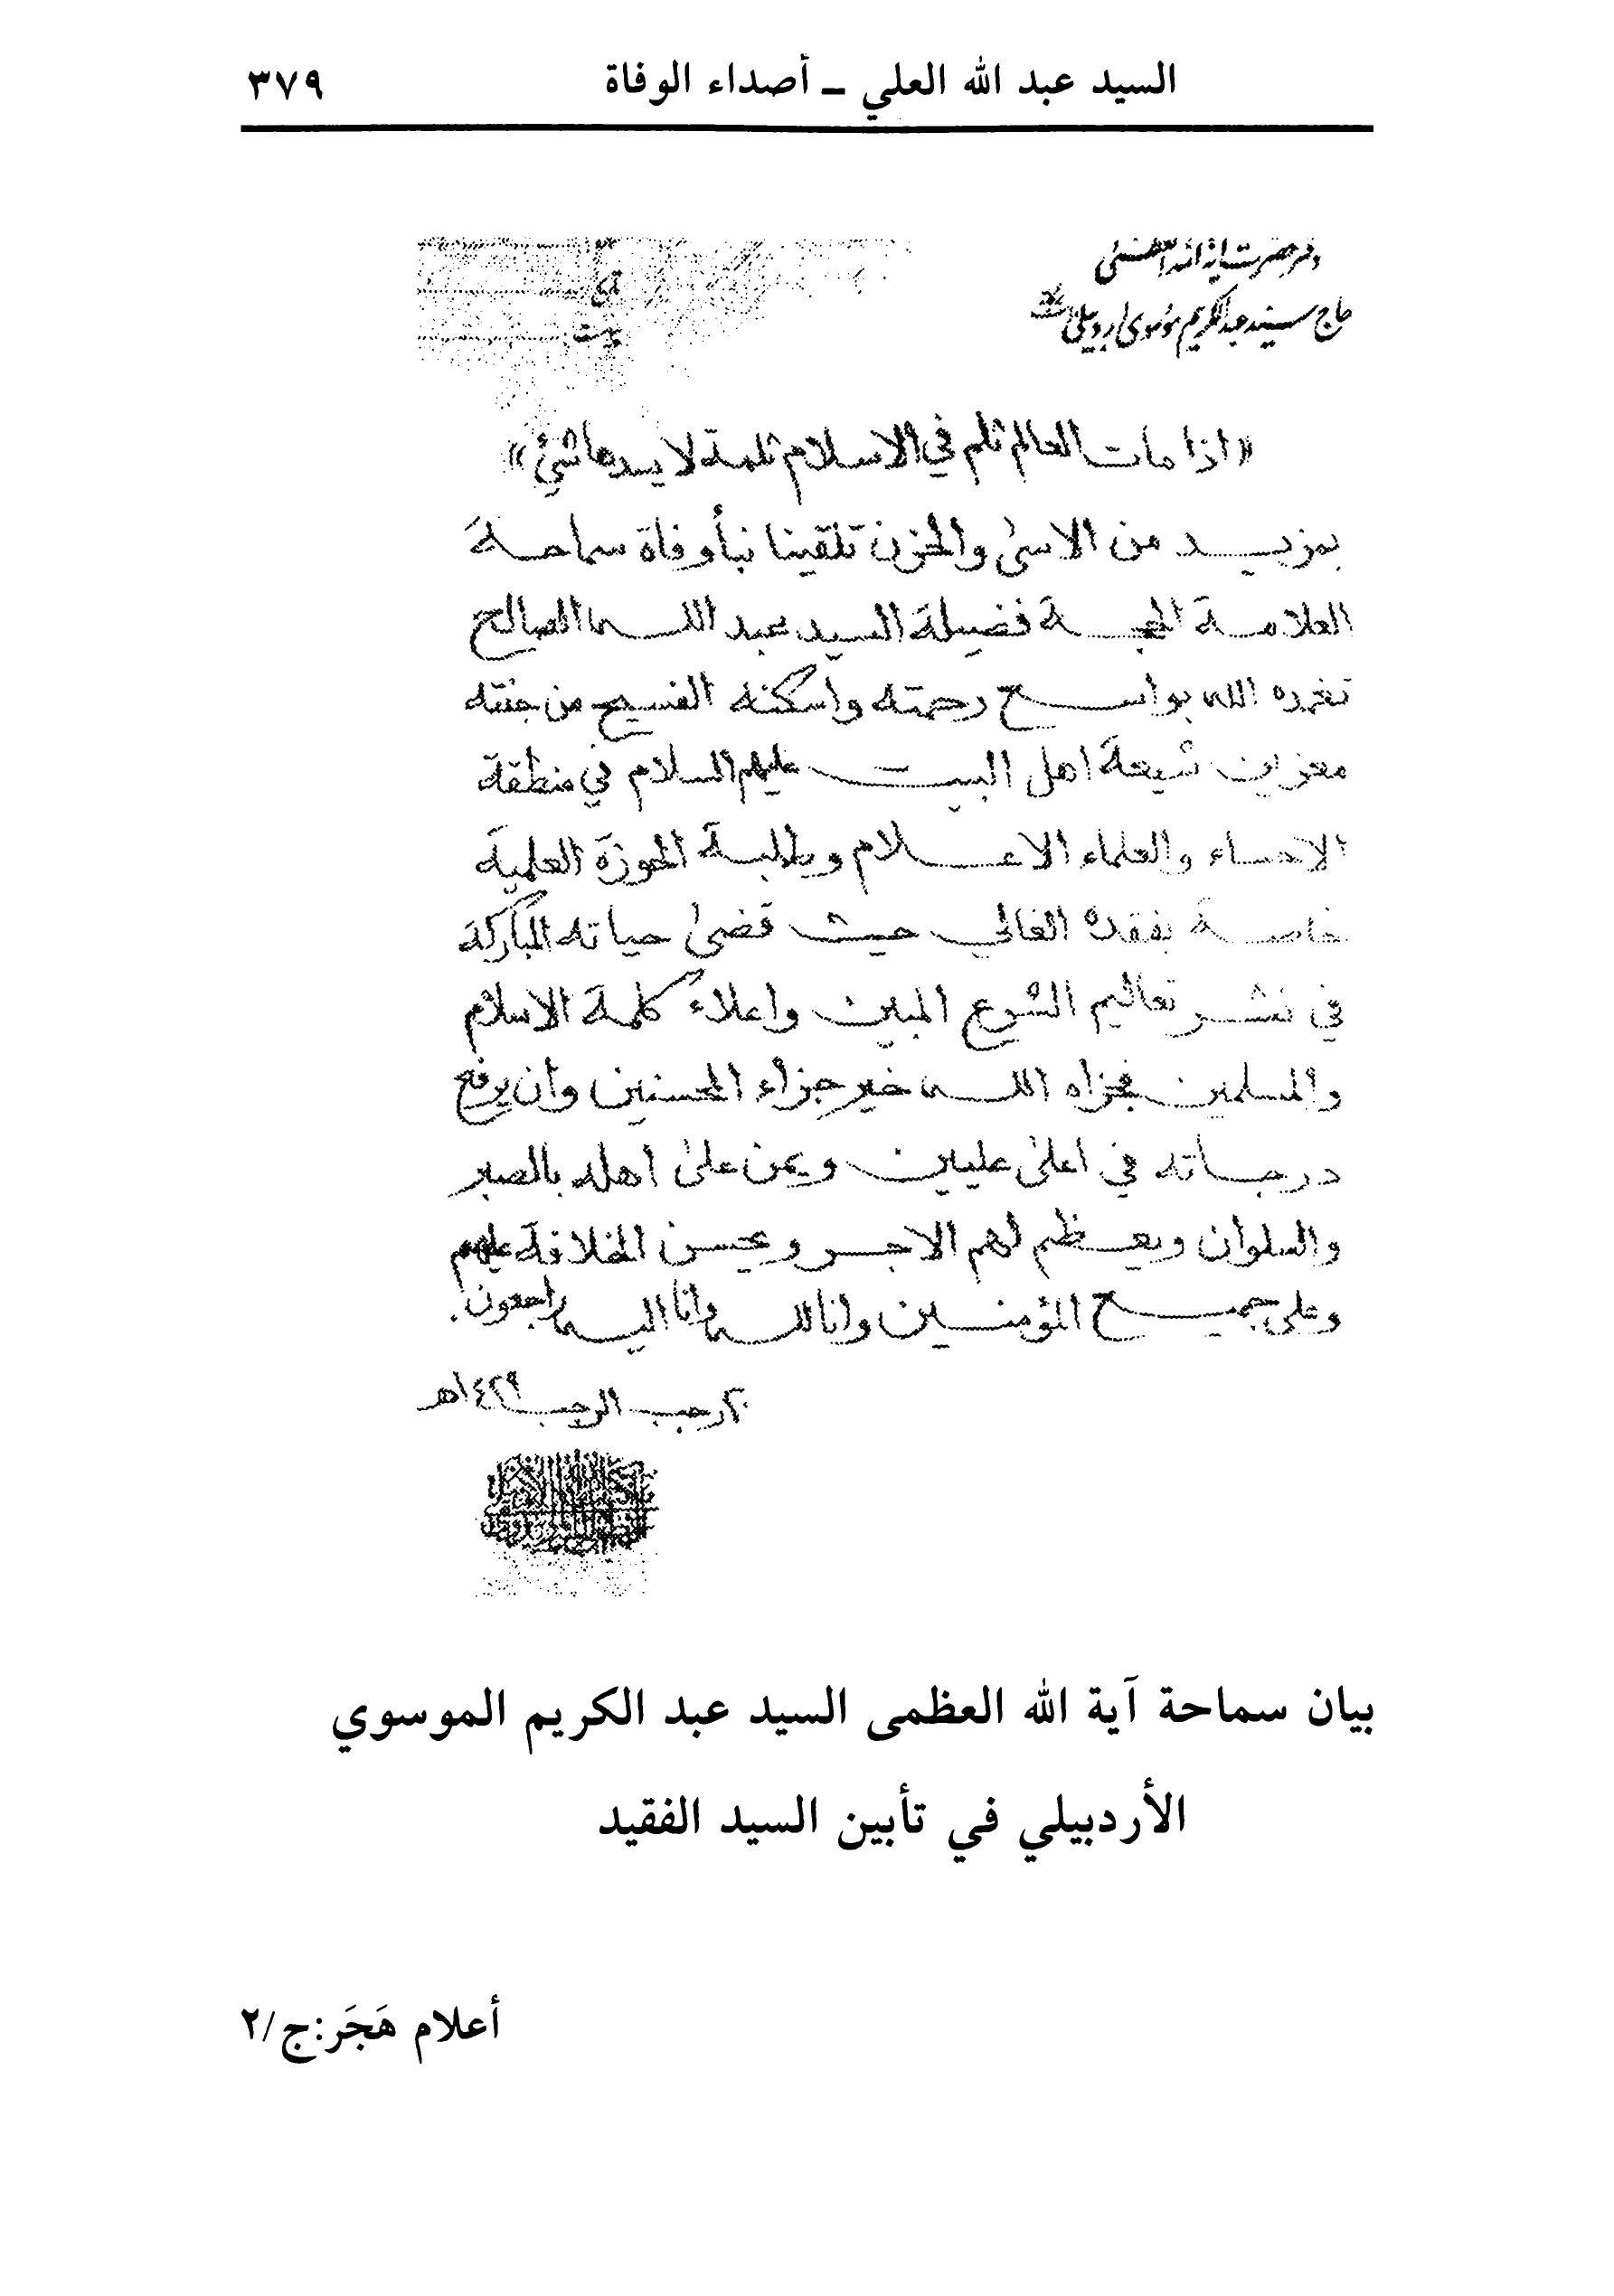 السيد عبد الله العلي ــ أصداء الوفاة ٣٧٩
دفتر حضرت آية الله العظمى
حاج سيد عبدالكريم موسوي اردبيلي
«اذا مات العالم ثلم في الاسلام ثلمة لا يسدها شئ»
بمزيد من الاسىٰ والحزن تلقينا نبأ وفاة سماحة
العلامة الحجة فضيلة السيد عبد الله الصالح
تغمده الله بواسع رحمته واسكنه الفسيح من جنته
معزين شيعة اهل البيت عليهم السلام في منطقة
الاحساء والعلماء الاعلام وطلبة الحوزة العلمية
خاصة بفقده الغالي حيث قضىٰ حياته المباركة
في نشر تعاليم الشرع المبين واعلاء كلمة الاسلام
والمسلمين فجزاه الله خير جزاء المحسنين وأن يرفع
درجاته في اعلىٰ عليين ويمن علىٰ اهله بالصبر
والسلوان ويعظم لهم الاجر ويحسن الخلافة عليهم
وعلى جميع المؤمنين وانا لله وانا اليه راجعون.
٢٠ رجب الرجب ١٤٢٩هـ
بيان سماحة آية الله العظمى السيد عبد الكريم الموسوي
الأردبيلي في تأبين السيد الفقيد
أعلام هَجَر:ج/٢